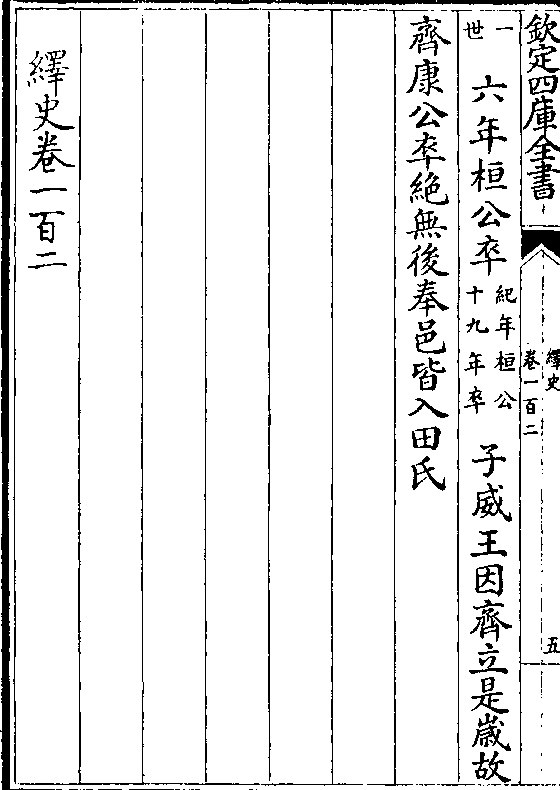 欽定四庫全書
繹史
卷一百二
五
一世六年桓公卒紀年桓公十九年卒子威王因齊立是嵗故
齊康公卒絶無後奉邑皆入田氏
繹史卷一百二